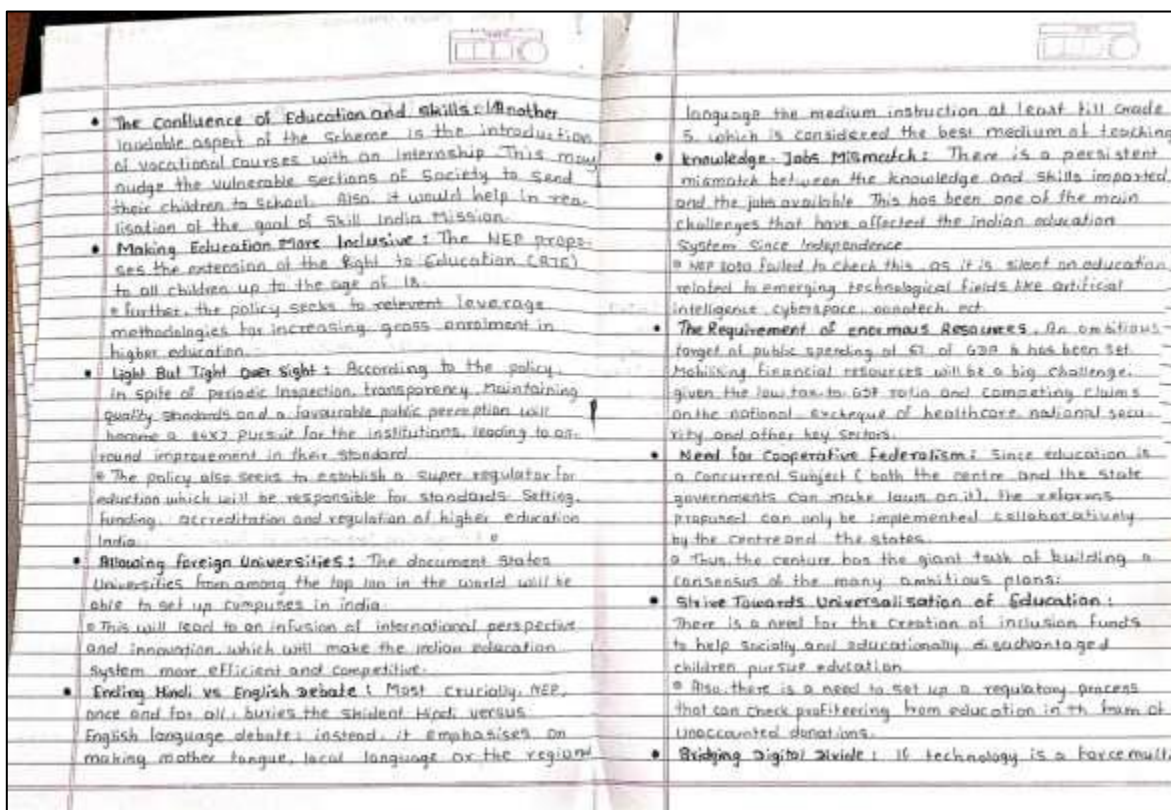 • The Confluence of Education and Skills: Another
laudable aspect of the scheme is the introduction
of vocational courses with an Internship. This may
nudge the vulnerable sections of Society to send
their children to School. Also, it would help in rea-
lisation of the goal of Skill India Mission.
• Making Education More Inclusive: The NEP propo-
ses the extension of the Right to Education (RTE)
to all children up to the age of 18.
Further, the policy seeks to relevent leverage
methodologies for increasing gross enrolment in
higher education.
• Light But Tight Over Sight: According to the policy,
in spite of periodic Inspection, transparency, Maintaining
quality standards and a favourable public perception will
become a 24X7 Pursuit for the institutions, leading to all-
round improvement in their standard
The policy also seeks to establish a super regulator for
eduction which will be responsible for standards Setting,
funding, accreditation and regulation of higher education
India.
• Allowing foreign Universities: The document States
Universities from among the top 100 in the world will be
able to set up cumpuses in india.
This will lead to an infusion of international perspective
and innovation, which will make the indian education
System more efficient and competitive.
• Ending Hindi vs English Debate: Most crucially, NEP,
once and for all, buries the Hindi versus
English language debate; instead, it emphasises on
making mother tongue, local language or the regional
language the medium instruction at least till Grade
5, which is considered the best medium of teaching
• Knowledge-Jobs Mismatch: There is a persistent
mismatch between the knowledge and skills imparted
and the jobs available This has been one of the main
challenges that have affected the indian education
System Since Independence
NEP 2020 failed to check this, as it is silent on education
related to emerging technological fields like artificial
intelligence, cyberspace, nanotech, ect.
• The Requirement of enormous Resources. An ambitious
target of public spending at 6% of GDP has been set.
Mobilising financial resources will be a big challenge,
given the low tax-to GDP ratio and competing Claims
on the national excheque of healthcare, national secu-
rity and other key Sectors.
• Need for Cooperative Federalism: Since education is
a Concurrent Subject (both the centre and the state
governments can make laws on it), the reforms
proposed can only be implemented collaboratively
by the centre and the states.
Thus, the centure has the giant task of building a
consensus of the many ambitious plans:
• Strive Towards Universalisation of Education:
There is a need for the creation of inclusion funds
to help Socially and educationally disadvantaged
children pursue education
Also, there is a need to set up a regulatory process
that can check profiteering from education in th
unaccounted donations.
• Bridging Digital Divide: If technology is a force mult